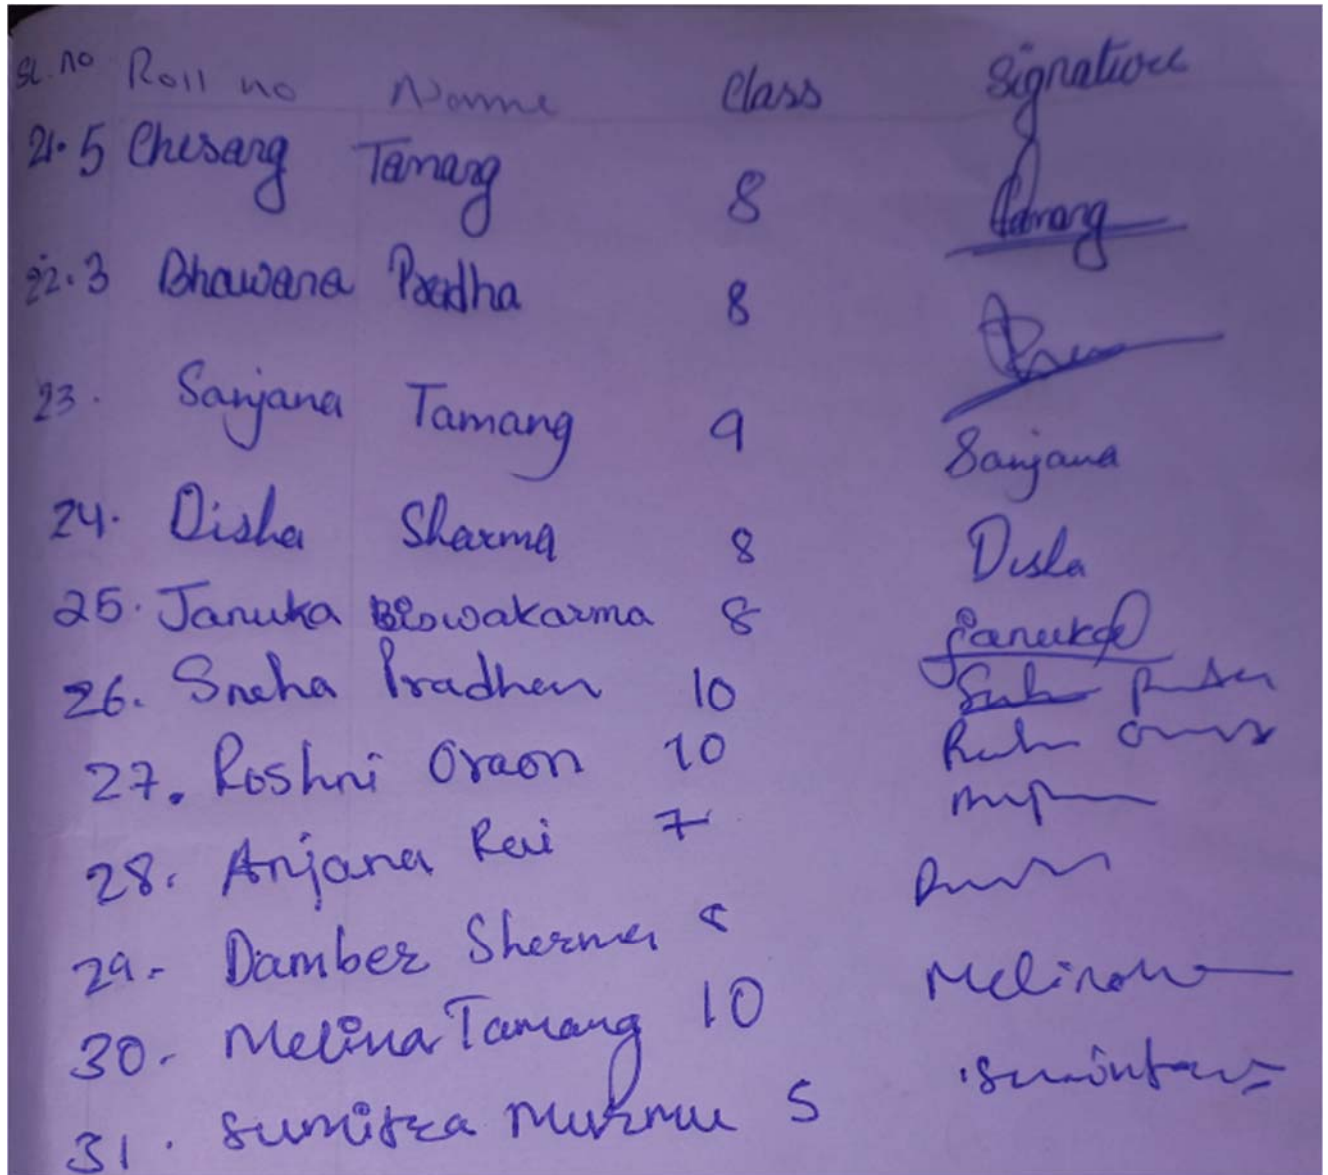 SL. no Roll no Name Class Signature
21. 5 Chesang Tamang 8 Tamang
22. 3 Bhawana Pradha 8
23. Sanjana Tamang 9 Sanjana
24. Disha Sharma 8 Disha
25. Januka Biswakarma 8 Januka
26. Sneha Pradhan 10
27. Roshni Oraon 10
28. Anjana Rai 7
29. Damber Sharma 8
30. Melina Tamang 10 Melina
31. Sumitra Murmu 5